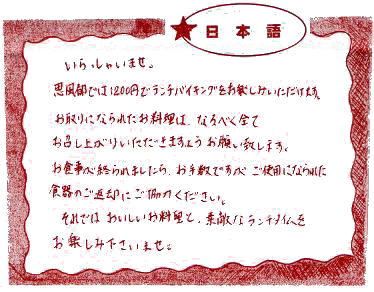 日本語
いらっしゃいませ。
思風都では1200円でランチバイキングをお楽しみいただけます。
お取りになられたお料理は、なるべく全て
お召し上がりいただきますようお願い致します。
お食事が終られましたら、お手数ですが、ご使用になられた
食器のご返却にご協力ください。
それではおいしいお料理と、素敵なランチタイムを
お楽しみ下さいませ。